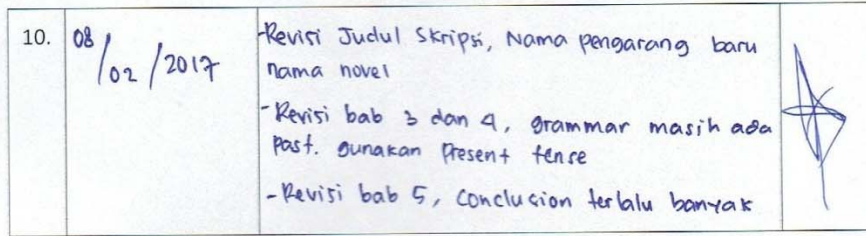 10.
08/02/2017
-Revisi Judul Skripsi, Nama pengarang baru
nama novel
-Revisi bab 3 dan 4, grammar masih ada
past. gunakan Present tense
-Revisi bab 5, Conclusion terlalu banyak